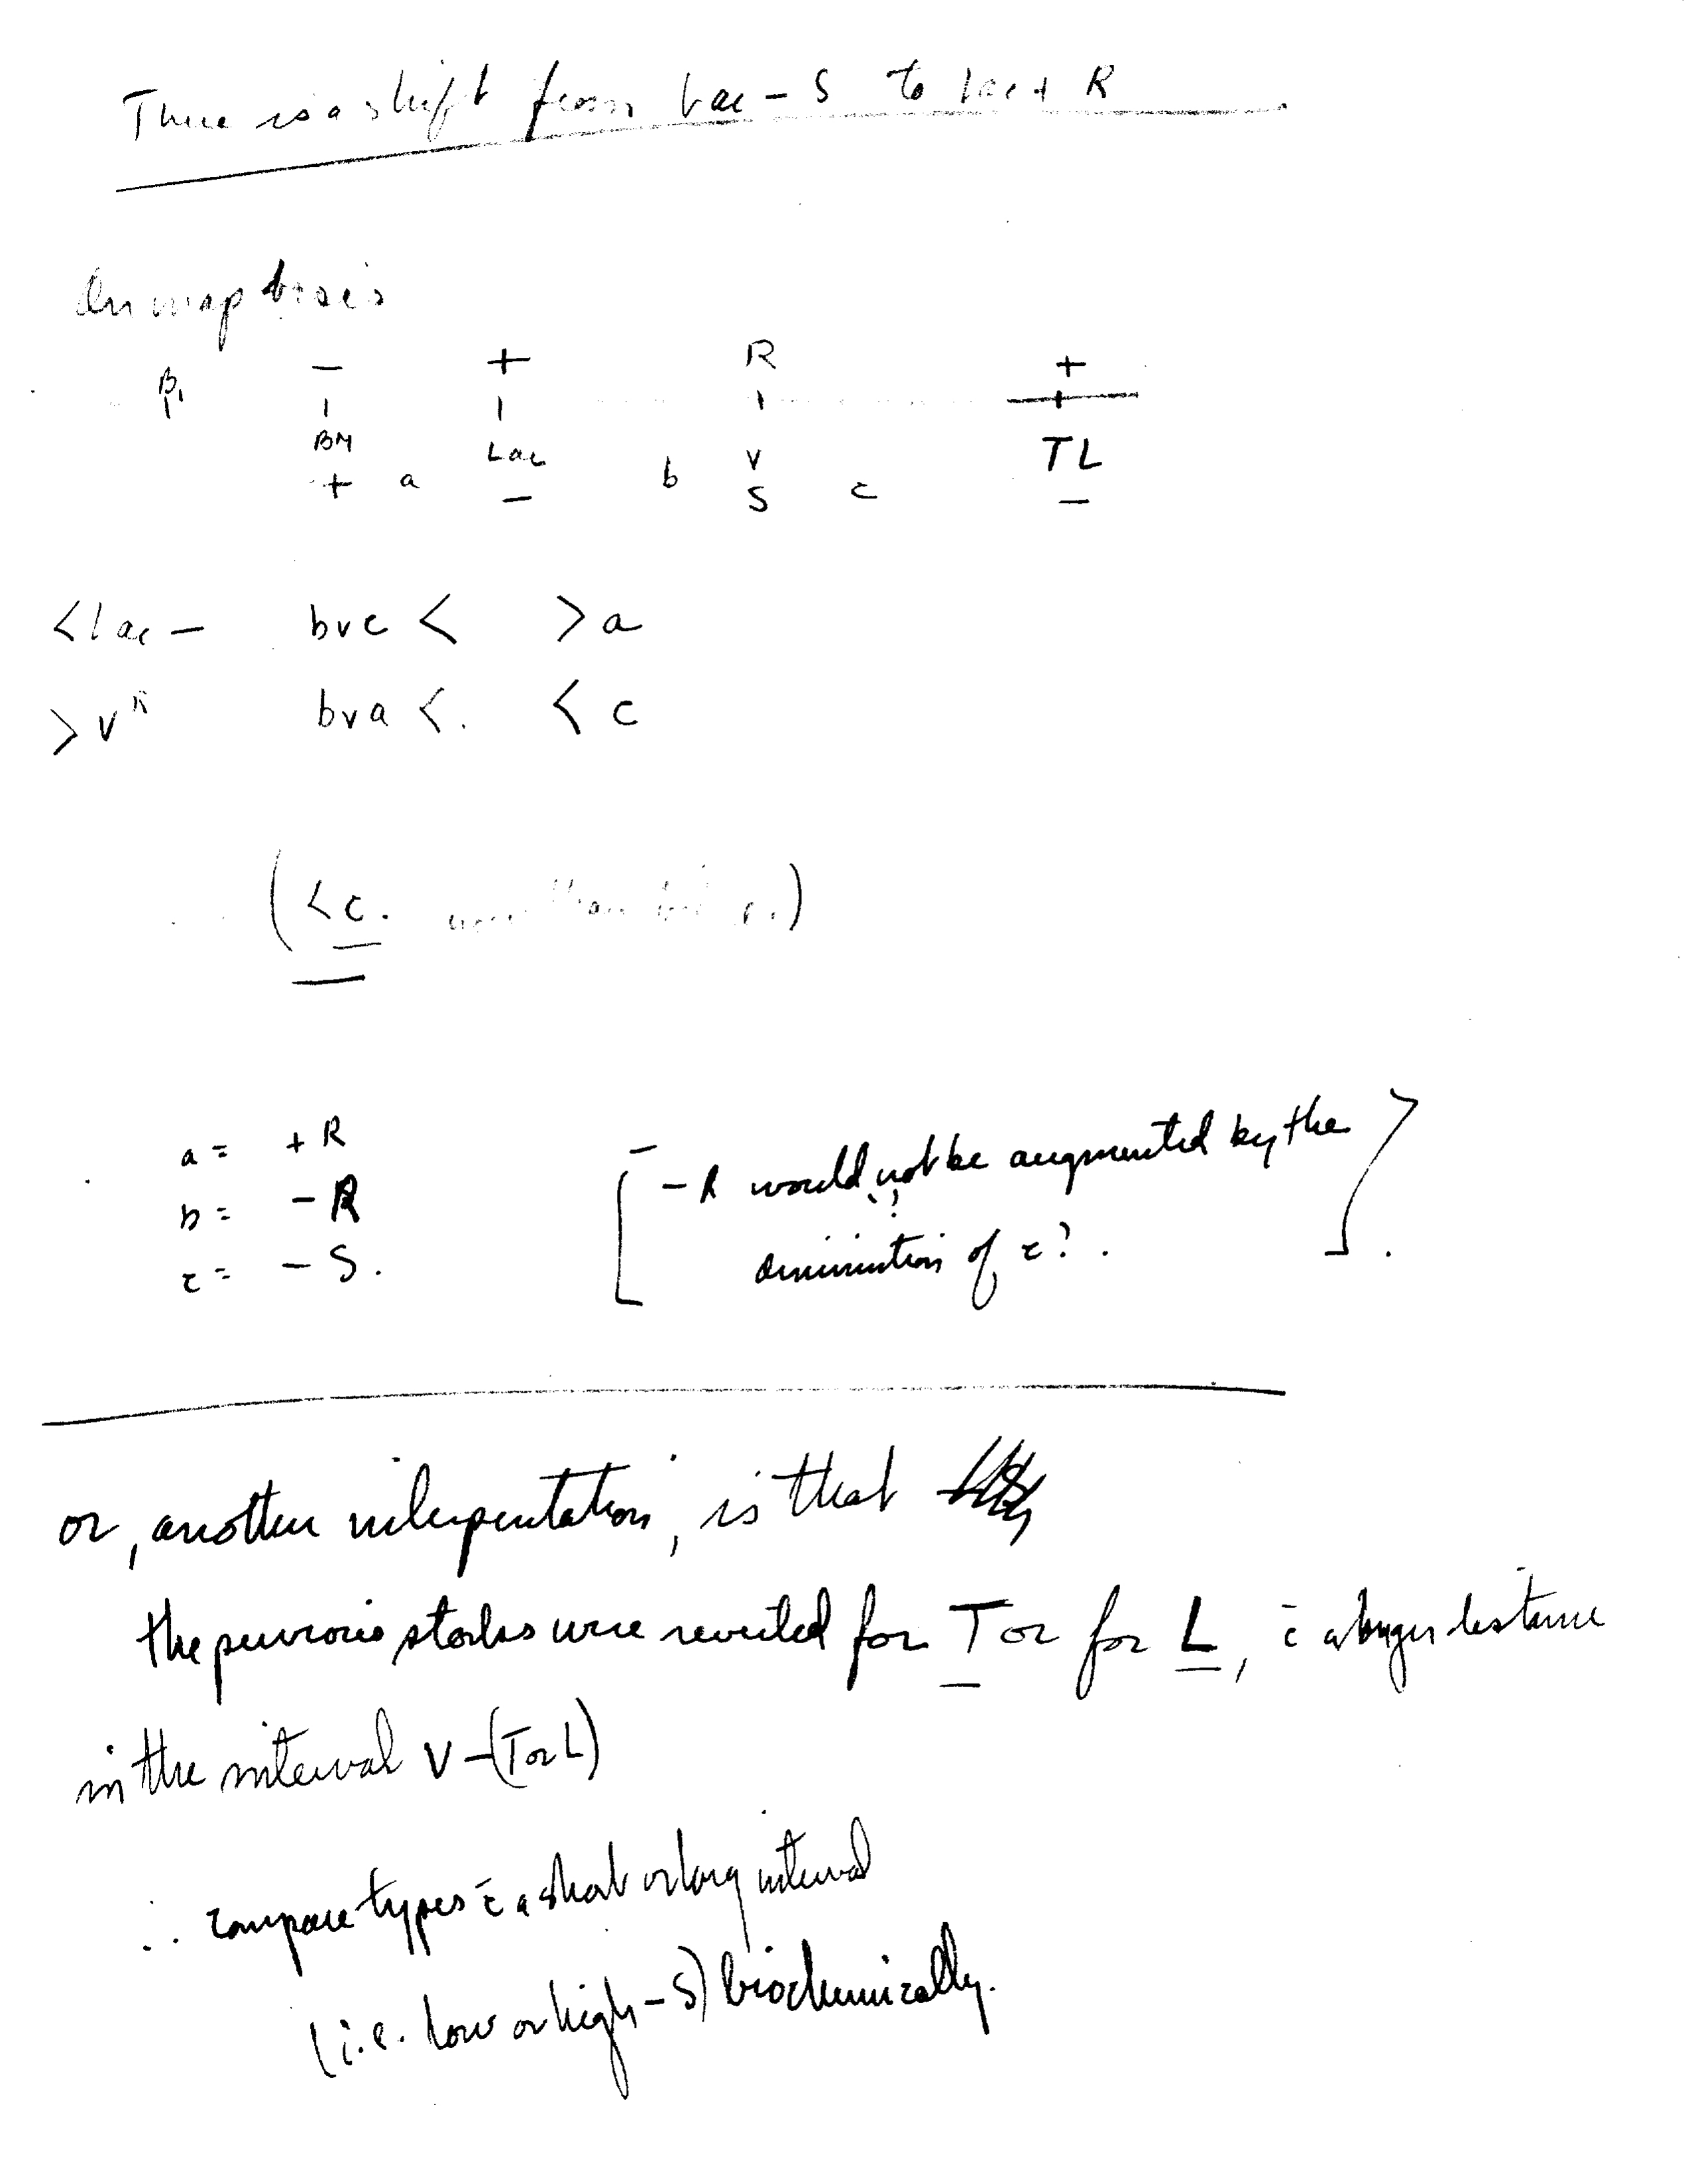 There is a shift from Lac - S to Lac + R
On map basis
- + R +
B₁
BM Lac V TL
+ a - b S c -
< Lac - bvc < > a
> V^R bva <. < c
(< c. than)
a = + R
b = - R
c = - S.
[ - R would not be augmented by the
diminution of c? . ]
or, another interpretation, is that
the previous stocks were reverted for T or for L, c̄ a longer distance
in the interval V - (T or L)
∴ compare types c̄ a short or long interval
(i.e. low or high - S) biochemically.